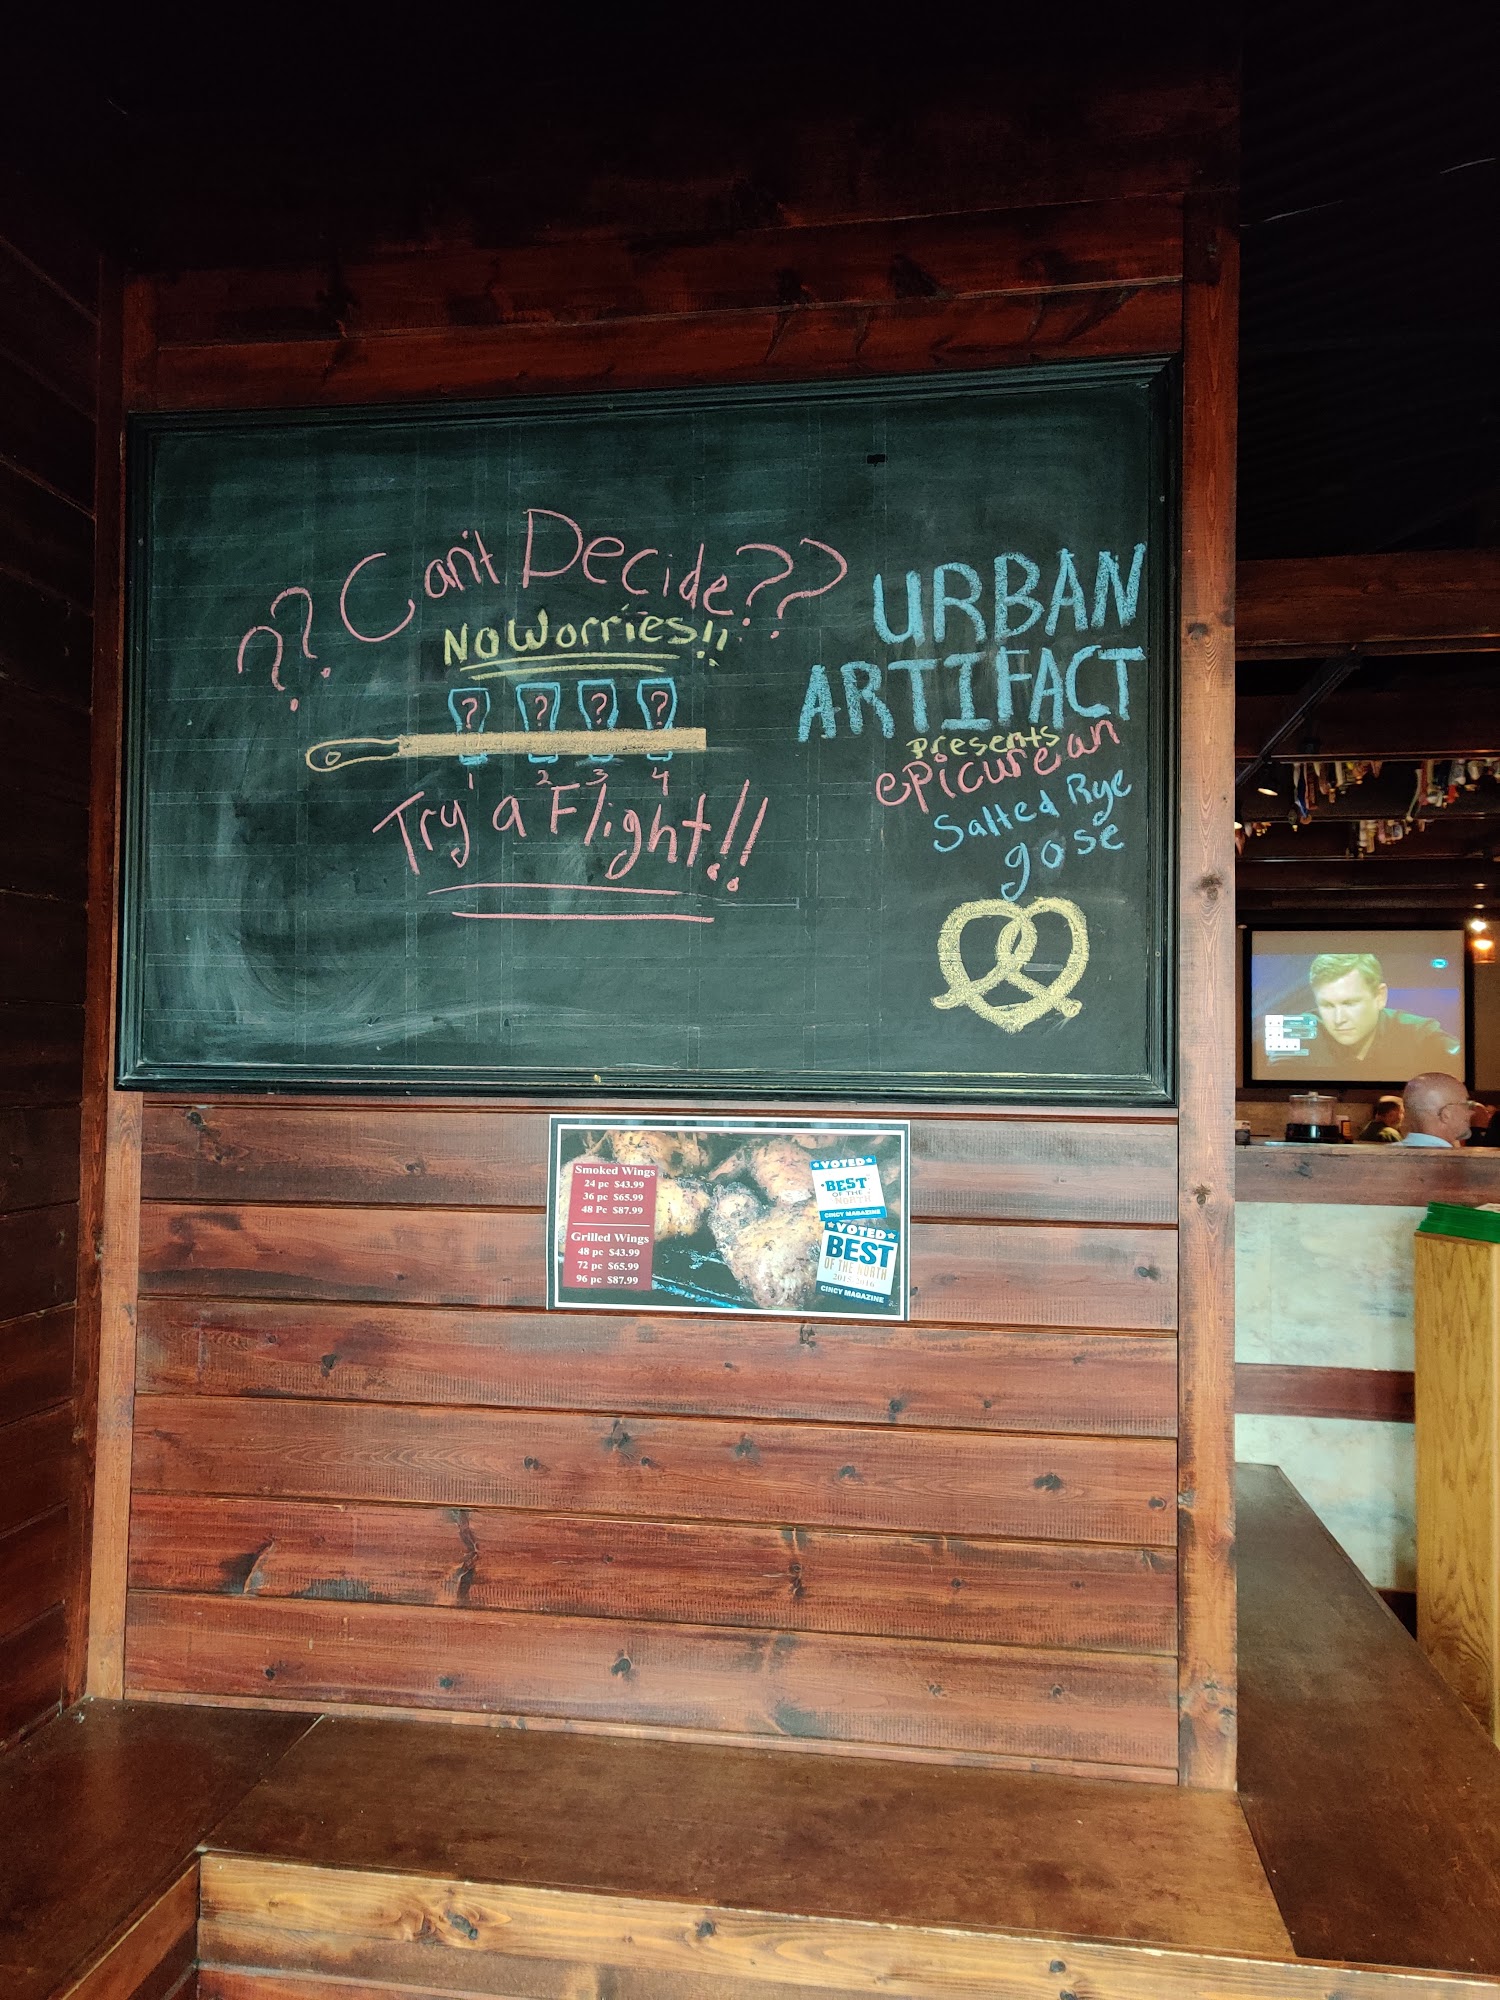 ?? Can't Decide??
No Worries!!
? ? ? ?
1 2 3 4
Try a Flight!!
URBAN
ARTIFACT
Presents
epicurean
Salted Rye
gose
Smoked Wings
24 pc $43.99
36 pc $65.99
48 Pc $87.99
Grilled Wings
48 pc $43.99
72 pc $65.99
96 pc $87.99
VOTED
BEST
OF THE
NORTH
CINCY MAGAZINE
VOTED
BEST
OF THE NORTH
2015 2016
CINCY MAGAZINE